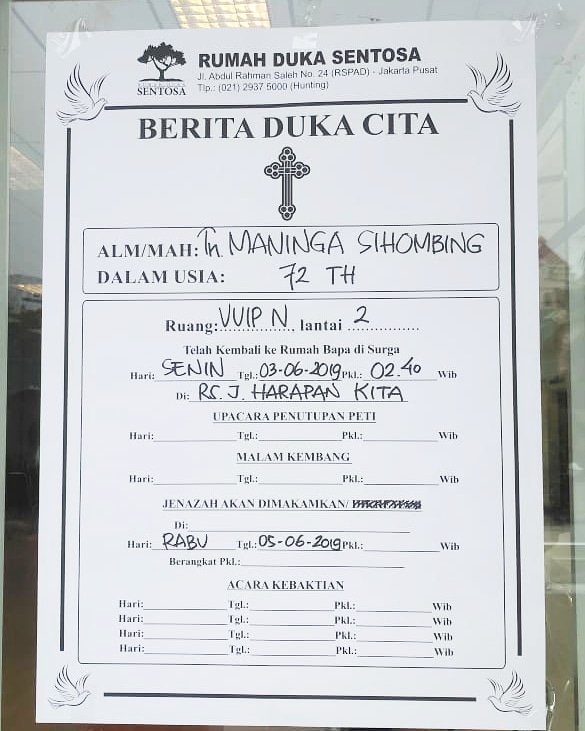 SENTOSA
RUMAH DUKA SENTOSA
Jl. Abdul Rahman Saleh No. 24 (RSPAD) - Jakarta Pusat
Tlp.: (021) 2937 5000 (Hunting)
BERITA DUKA CITA
ALM/MAH: Tn. MANINGA SIHOMBING
DALAM USIA: 72 TH
Ruang: VVIP N lantai 2
Telah Kembali ke Rumah Bapa di Surga
Hari: SENIN Tgl.: 03-06-2019 Pkl.: 02.40 Wib
Di: RS. J. HARAPAN KITA
UPACARA PENUTUPAN PETI
Hari: Tgl.: Pkl.: Wib
MALAM KEMBANG
Hari: Tgl.: Pkl.: Wib
JENAZAH AKAN DIMAKAMKAN/
Di:
Hari: RABU Tgl.: 05-06-2019 Pkl.: Wib
Berangkat Pkl.:
ACARA KEBAKTIAN
Hari: Tgl.: Pkl.: Wib
Hari: Tgl.: Pkl.: Wib
Hari: Tgl.: Pkl.: Wib
Hari: Tgl.: Pkl.: Wib